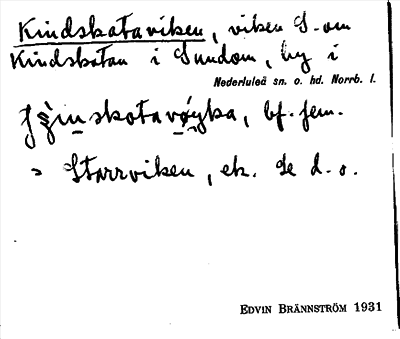 Kindskataviken, viken S-om
Kindskatan i Sundom, by i
Nederluleå sn. o. hd. Norrb. l.
bf. fem.
= Starrviken, ek. Se d. o.
EDVIN BRÄNNSTRÖM 1931